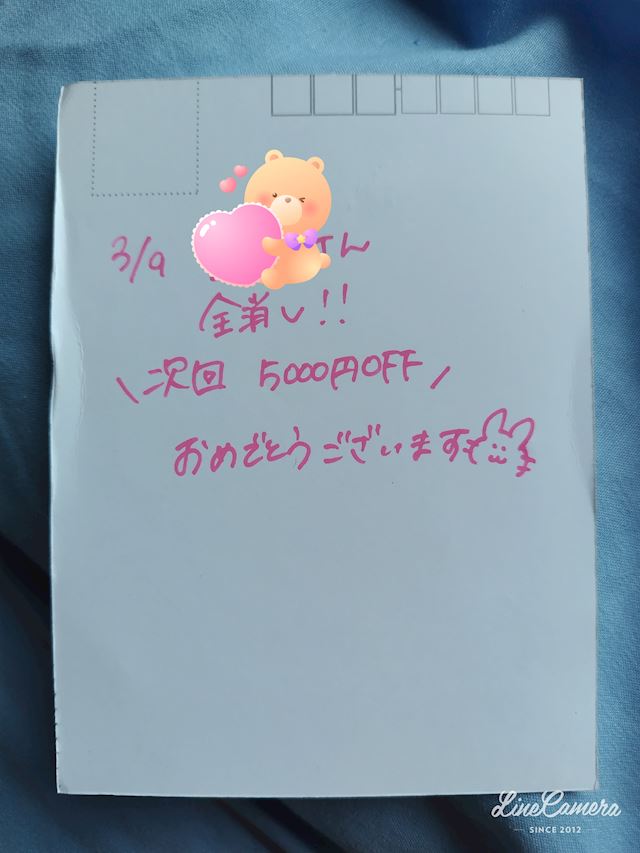 3/9 さん
全消し!!
\次回 5000円OFF/
おめでとうございます
LineCamera
SINCE 2012